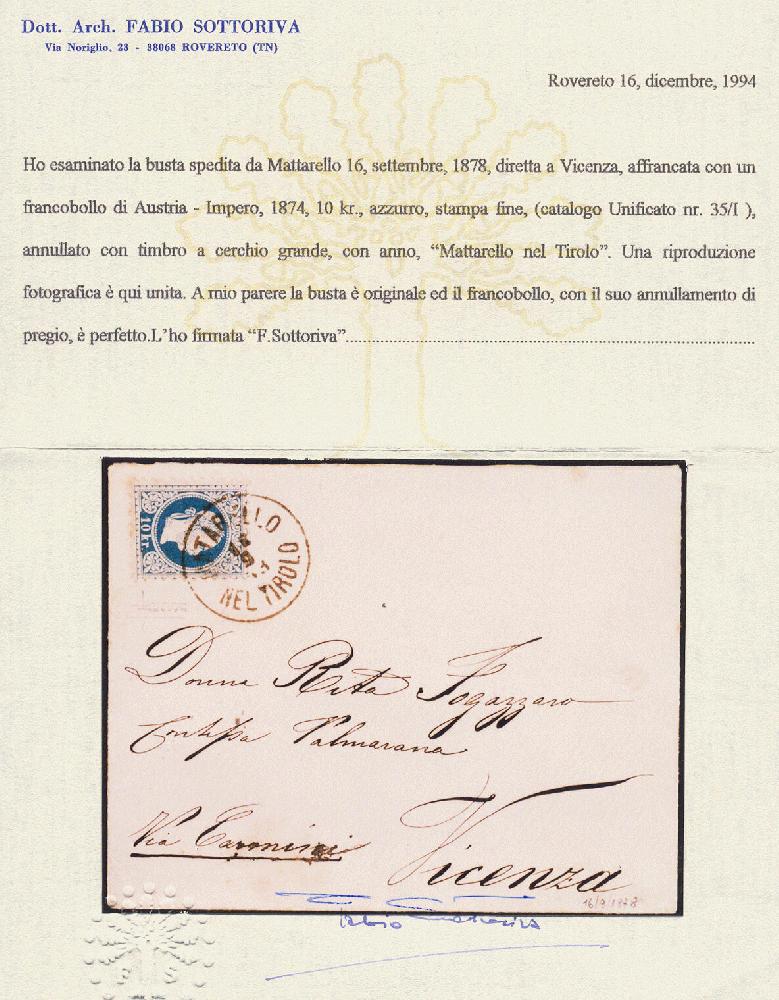 Dott. Arch. FABIO SOTTORIVA
Via Noriglio, 23 - 38068 ROVERETO (TN)
Rovereto 16, dicembre, 1994
Ho esaminato la busta spedita da Mattarello 16, settembre, 1878, diretta a Vicenza, affrancata con un
francobollo di Austria - Impero, 1874, 10 kr., azzurro, stampa fine, (catalogo Unificato nr. 35/I ),
annullato con timbro a cerchio grande, con anno, “Mattarello nel Tirolo”. Una riproduzione
fotografica è qui unita. A mio parere la busta è originale ed il francobollo, con il suo annullamento di
pregio, è perfetto.L’ho firmata “F.Sottoriva”......................................................
10 kr.
NEL TIROLO
Donna Rita Fogazzaro
Contessa Valmarana
Via
Vicenza
16/9 1878
Fabio Sottoriva
FS